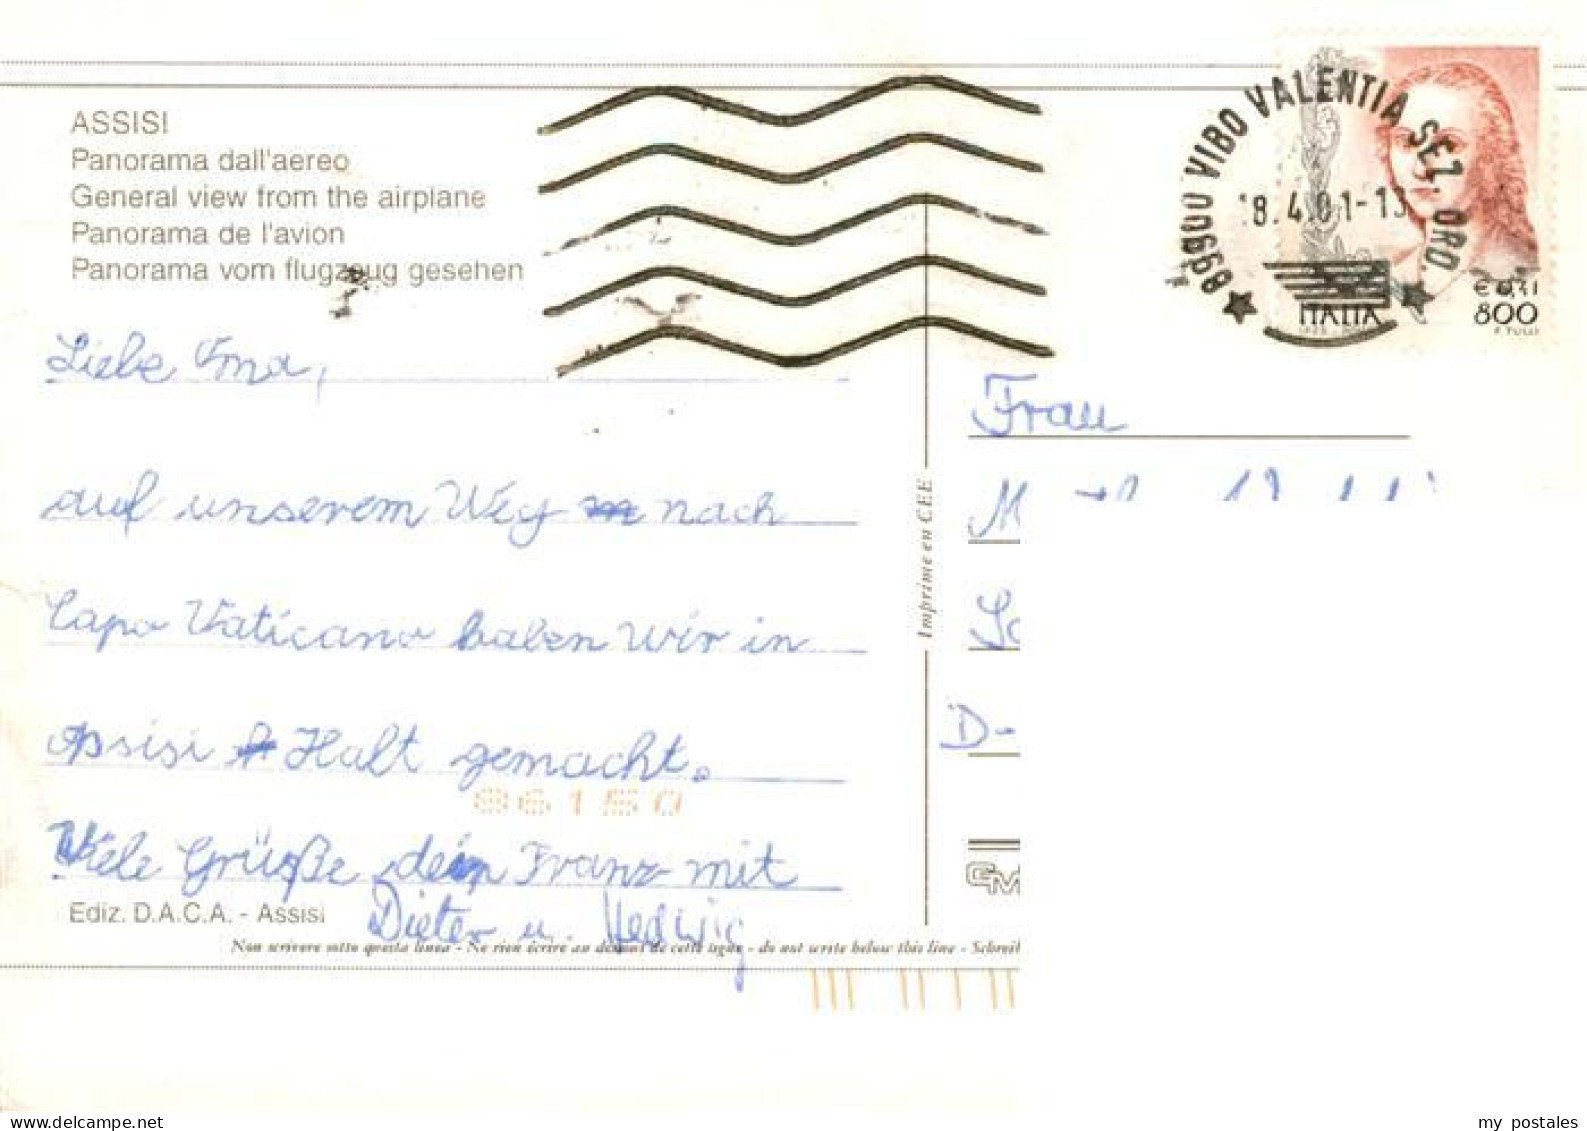 ASSISI
Panorama dall'aereo
General view from the airplane
Panorama de l'avion
Panorama vom flugzeug gesehen
89900 VIBO VALENTIA SEZ. ORD.
8.4.01-13
ITALIA
€ 0,41
800
F. TULLI
Liebe Oma,
auf unserem Weg nach
Capo Vaticano haben wir in
Assisi Halt gemacht.
86150
Viele Grüße dein Franz mit
Dieter u. Hedwig
Ediz. D.A.C.A. - Assisi
Non scrivere sotto questa linea - Ne rien écrire au dessous de cette ligne - do not write below this line - Schreib
Imprime en CEE
Frau
M
Sc
D-
GM
my postales